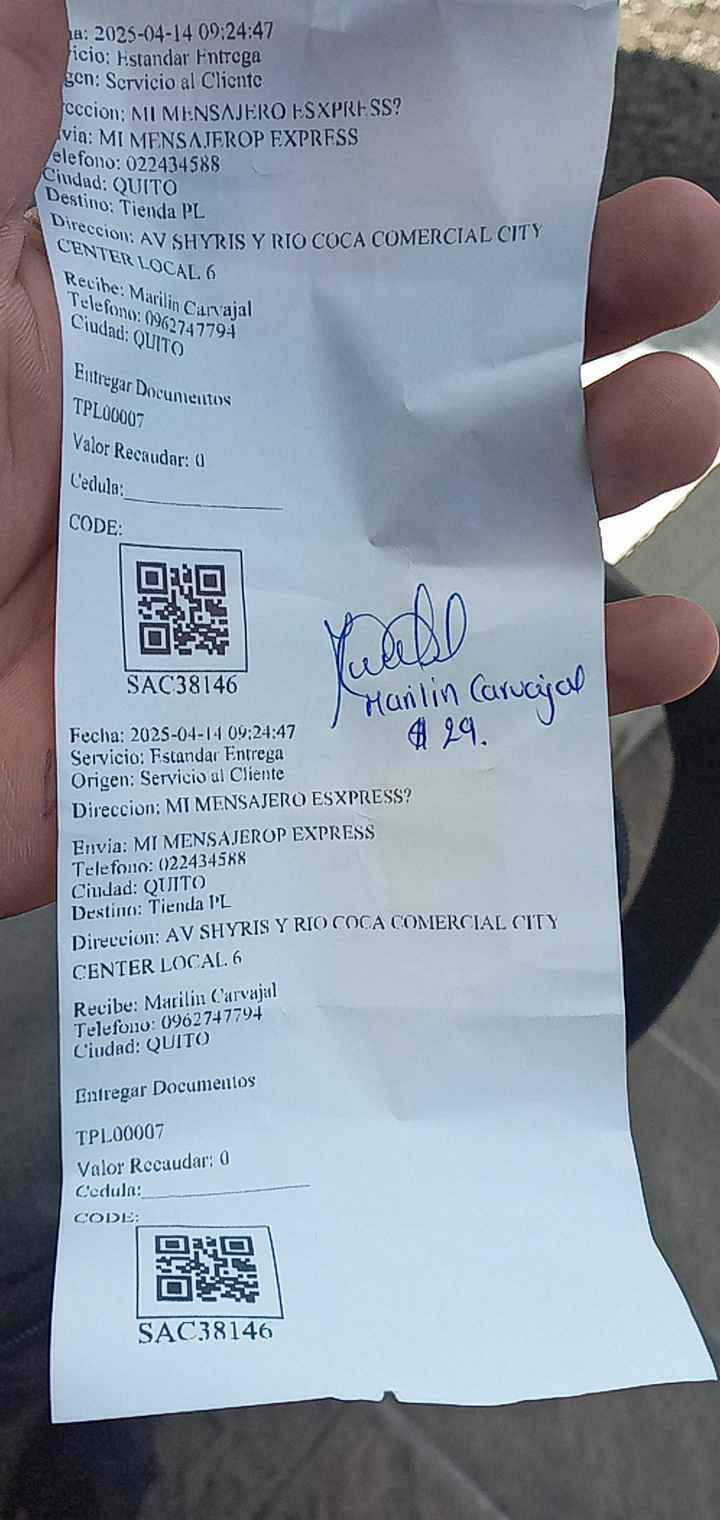 a: 2025-04-14 09:24:47
icio: Estandar Entrega
gen: Servicio al Cliente
reccion: MI MENSAJERO ESXPRESS?
nvia: MI MENSAJEROP EXPRESS
elefono: 022434588
Ciudad: QUITO
Destino: Tienda PL
Direccion: AV SHYRIS Y RIO COCA COMERCIAL CITY
CENTER LOCAL 6
Recibe: Marilin Carvajal
Telefono: 0962747794
Ciudad: QUITO
Entregar Documentos
TPL00007
Valor Recaudar: 0
Cedula:
CODE:
SAC38146
Marilin Carvajal
$ 29.
Fecha: 2025-04-14 09:24:47
Servicio: Estandar Entrega
Origen: Servicio al Cliente
Direccion: MI MENSAJERO ESXPRESS?
Envia: MI MENSAJEROP EXPRESS
Telefono: 022434588
Ciudad: QUITO
Destino: Tienda PL
Direccion: AV SHYRIS Y RIO COCA COMERCIAL CITY
CENTER LOCAL 6
Recibe: Marilin Carvajal
Telefono: 0962747794
Ciudad: QUITO
Entregar Documentos
TPL00007
Valor Recaudar: 0
Cedula:
CODE:
SAC38146